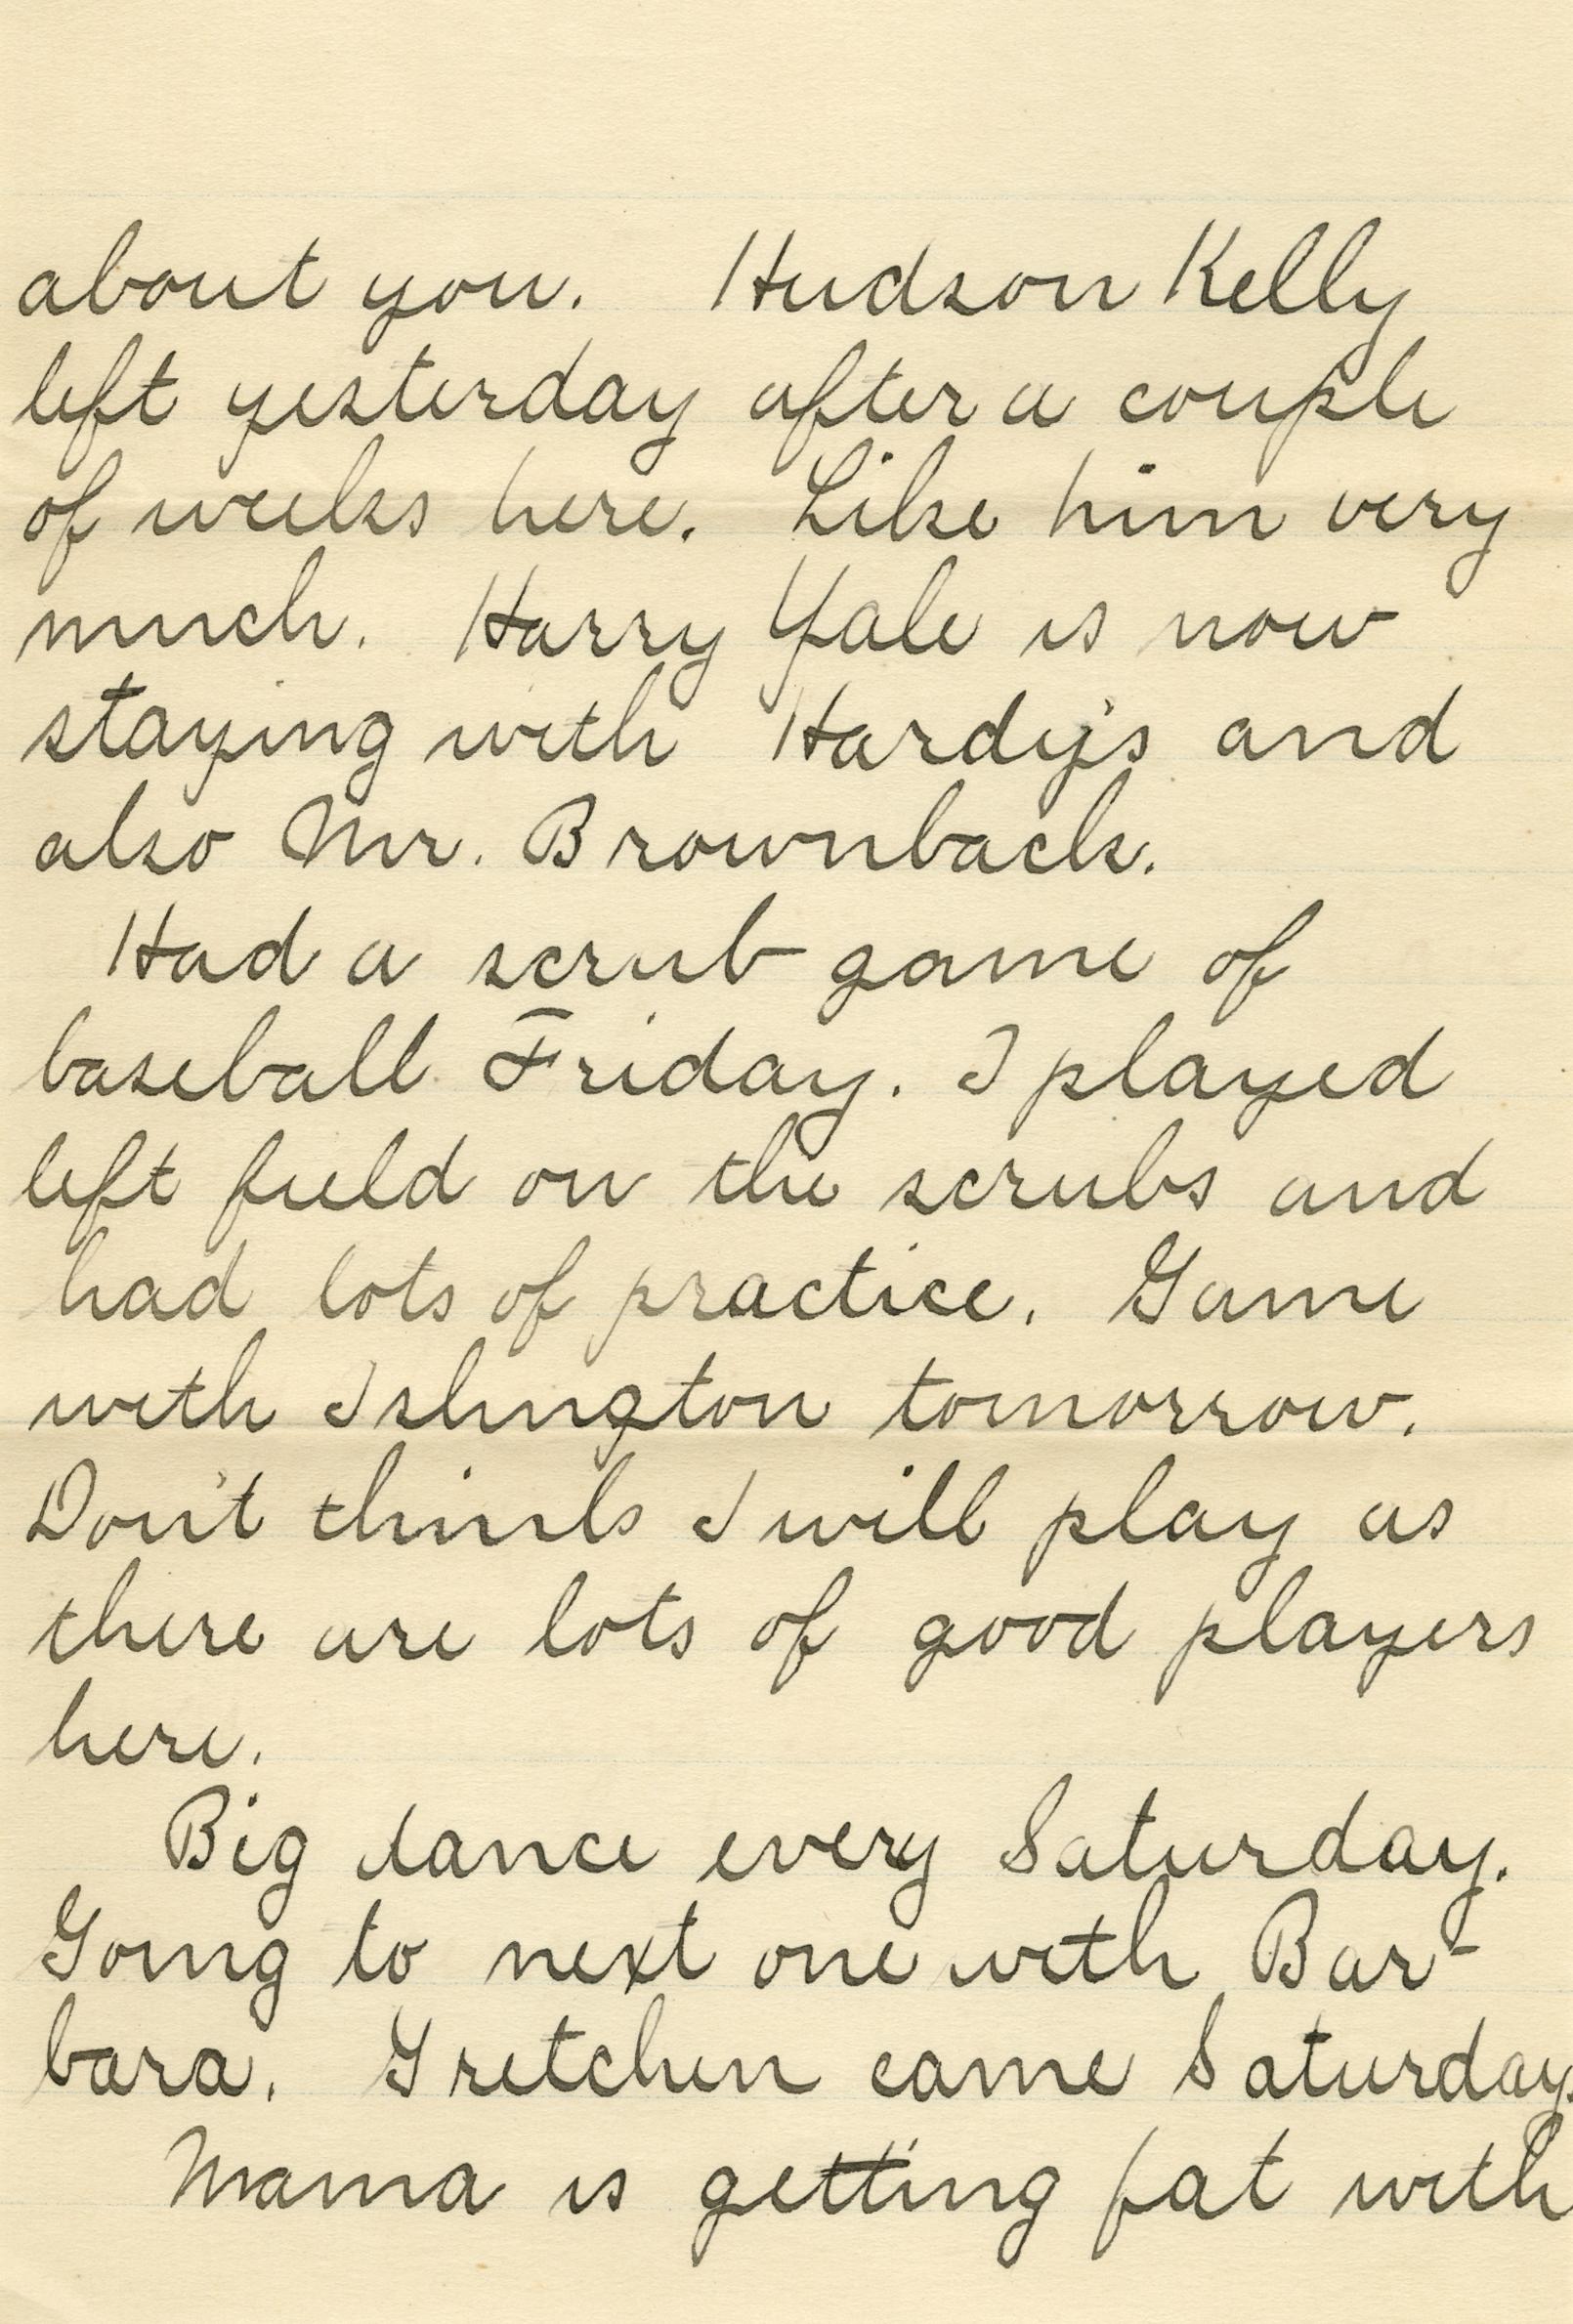 about you. Hudson Kelly
left yesterday after a couple
of weeks here. Like him very
much. Harry Yale is now
staying with Hardy's and
also Mr. Brownback.
Had a scrub game of
baseball Friday. I played
left field on the scrubs and
had lots of practice. Game
with Islington tomorrow.
Don't think I will play as
there are lots of good players
here.
Big dance every Saturday.
Going to next one with Bar-
bara. Gretchen came Saturday.
Mama is getting fat with